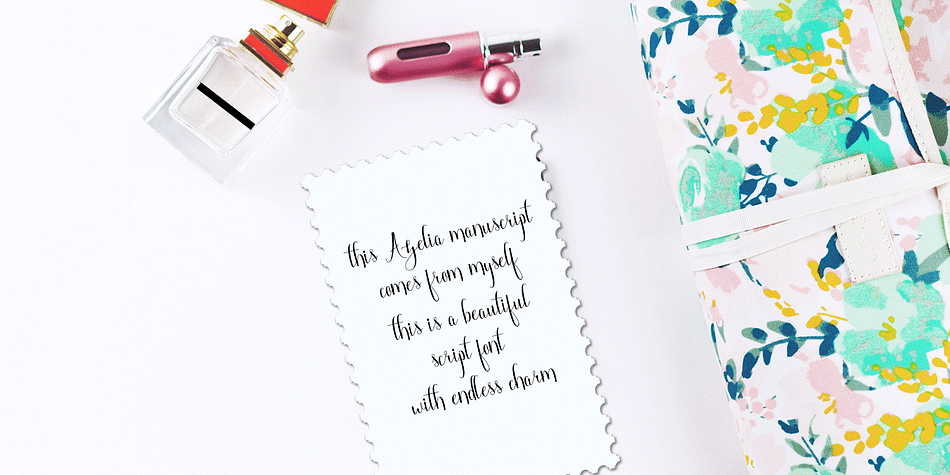 this Azelia manuscript
comes from myself
this is a beautiful
script font
with endless charm